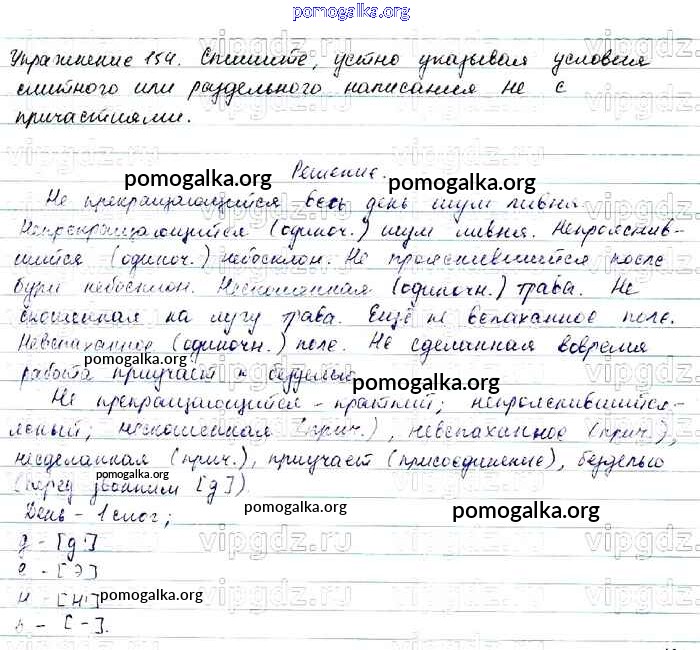 pomogalka.org
Упражнение 154. Спишите, устно указывая условия
слитного или раздельного написания не с
причастиями.
Решение.
pomogalka.org pomogalka.org
Не прекращающийся весь день шум ливня.
Непрекращающийся (одиноч.) шум ливня. Непрояснив-
шийся (одиноч.) небосклон. Не прояснившийся после
бури небосклон. Нескошенная (одиночн.) трава. Не
скошенная на лугу трава. Ещё не вспаханное поле.
Невспаханное (одиночн.) поле. Не сделанная вовремя
pomogalka.org
работа приучает к безделью.
pomogalka.org
Не прекращающийся - краткий; непрояснившийся-
ясный; нескошенная (прич.), невспаханное (прич.),
несделанная (прич.), приучает (присоединение), безделью
(перед звонким [д])
pomogalka.org pomogalka.org
День - 1 слог;
д - [д']
е - [э]
н - [н'] pomogalka.org
ь - [-].
vipgdz.ru